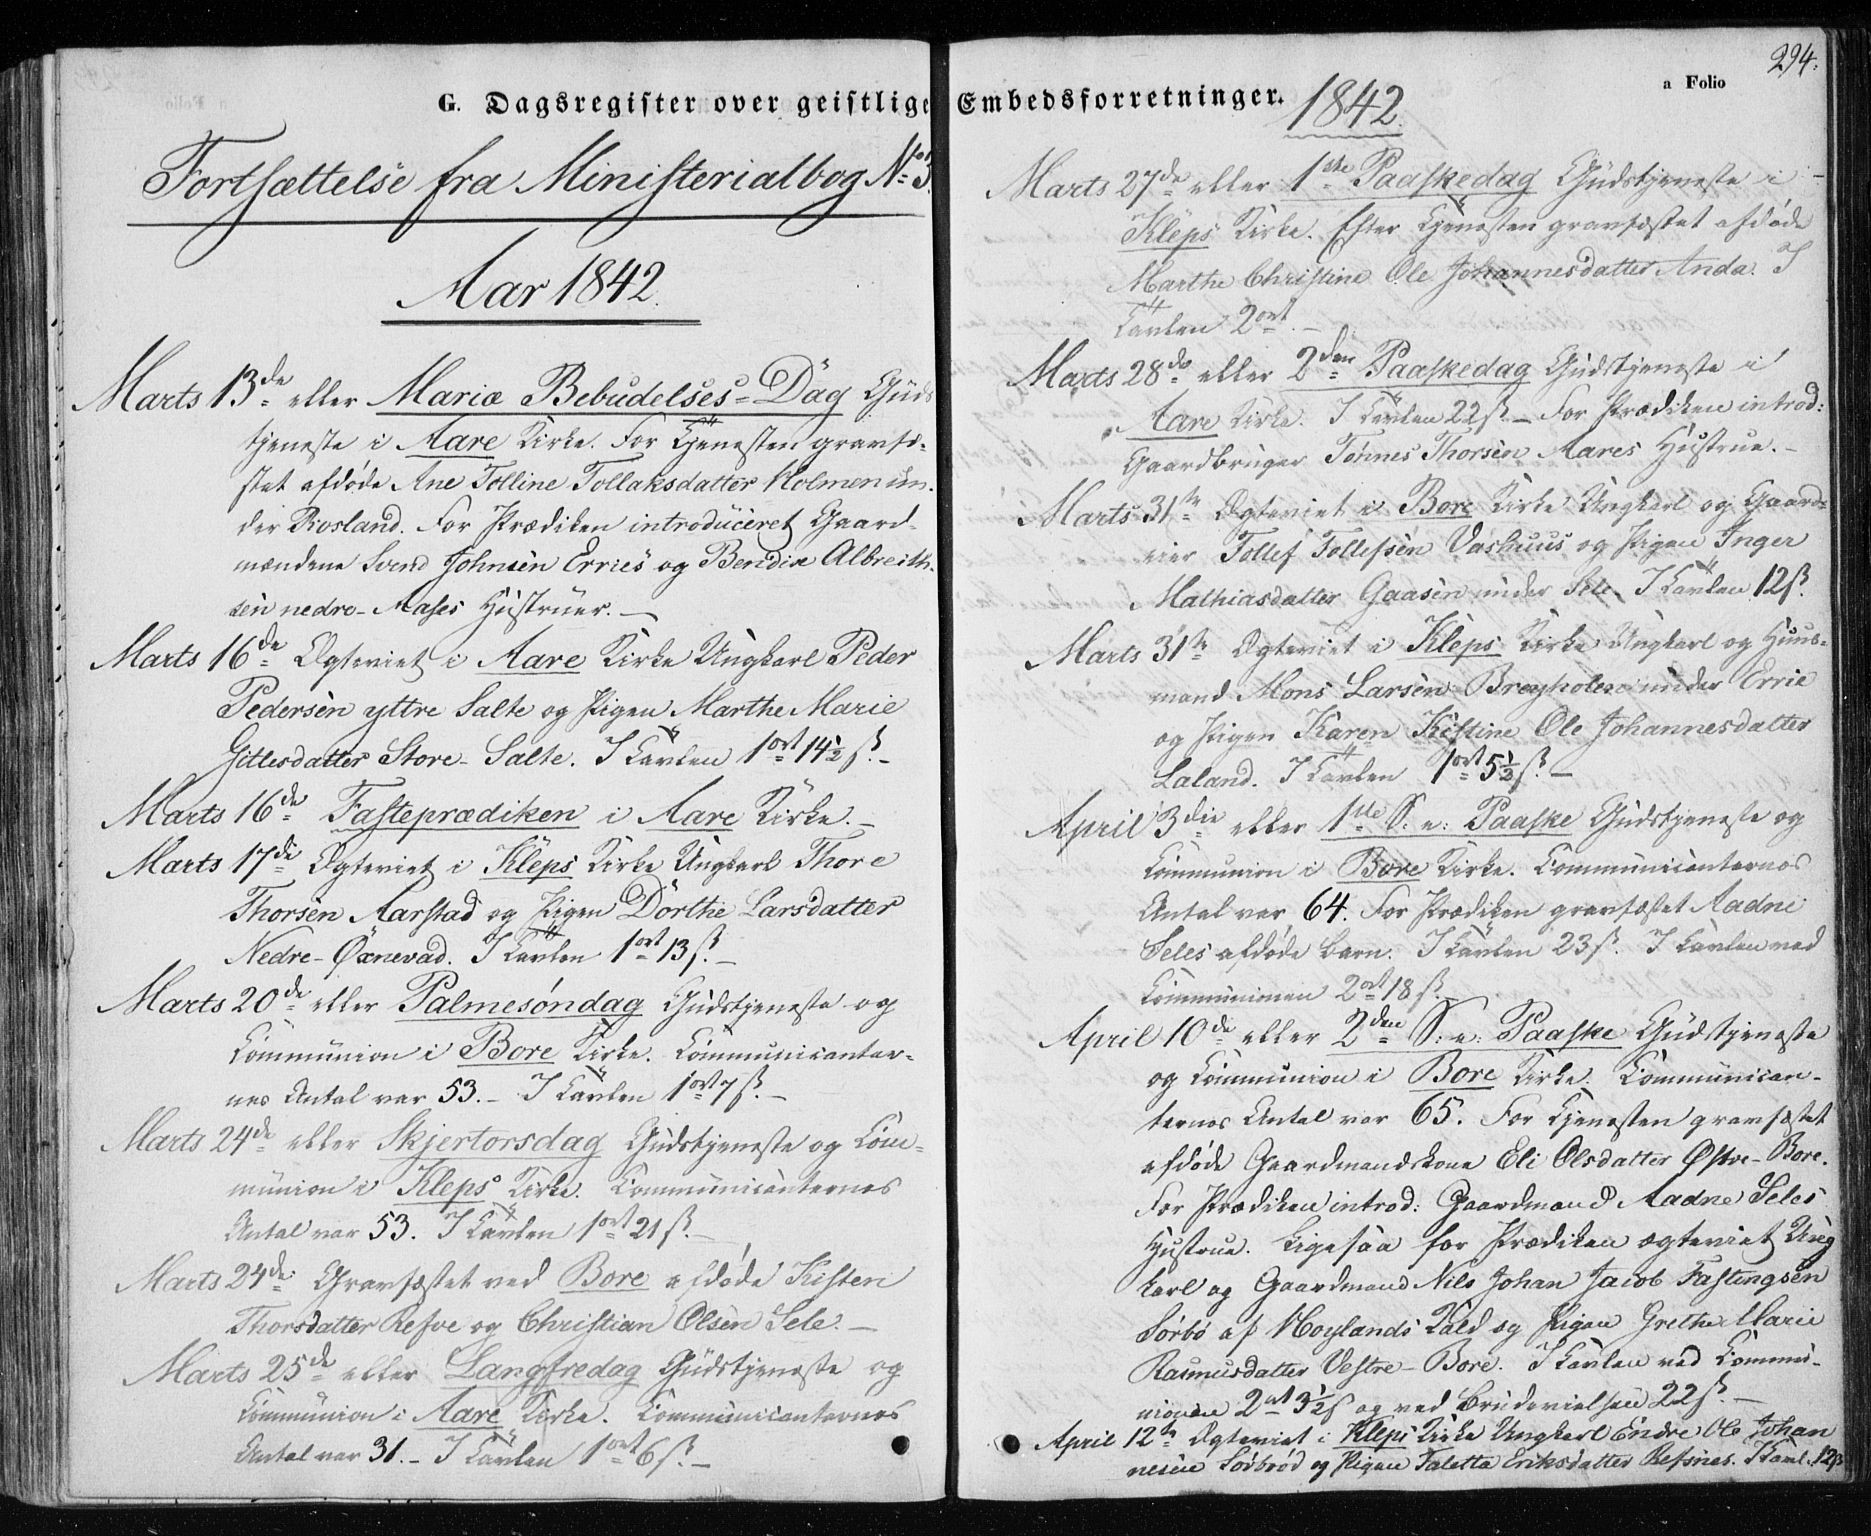 G. Dagsregister over geistlige Embedsforretninger.
Fortsættelse fra Ministerialbog No 3.
Aar 1842.
Marts 13de eller Mariæ Bebudelses-Dag Guds
tjeneste i Aare Kirke. Før Tjenesten gravfæ-
stet afdøde Ane Tolline Tollaksdatter Holmen un-
der Rosland. Før Prædiken introduceret Gaard-
mændene Svend Johnsen Erries og Bendix Albreith-
sen nedre-Aases Hustruer.—
Marts 16de Ægteviet i Aare Kirke Ungkarl Peder
Pedersen yttre Salte og Pigen Marthe Marie
Gittlesdatter Store-Salte. I Tavlen 1ort 14½ ß.—
Marts 16de Fasteprædiken i Aare Kirke.—
Marts 17de Ægteviet i Kleps Kirke Ungkarl Thore
Thorsen Aarstad og Pigen Dorthe Larsdatter
Nedre-Øxnevad. I Tavlen 1ort 13ß.—
Marts 20de eller Palmesøndag Gudstjeneste og
Communion i Bore Kirke. Communicanter-
nes Antal var 53.— I Tavlen 1ort 7ß.—
Marts 24de eller Skjertorsdag Gudstjeneste og Com-
munion i Kleps Kirke. Communicanternes
Antal var 53. I Tavlen 1ort 21ß.—
Marts 24de Gravfæstet ved Bore afdøde Kisten
Thorsdatter Refve og Christian Olsen Sele.—
Marts 25de eller Langfredag Gudstjeneste og
Communion i Aare Kirke. Communicanternes
Antal var 31.— I Tavlen 1ort 6ß.—
a Folio
294.
1842.
Marts 27de eller 1ste Paaskedag Gudstjeneste i
Kleps Kirke. Efter Tjenesten gravfæstet afdøde
Marthe Christine Ole Johannesdatter Anda. I
Tavlen 2ort.—
Marts 28de eller 2den Paaskedag Gudstjeneste i
Aare Kirke. I Tavlen 22ß.— Før Prædiken introd:
Gaardbruger Tønnes Thorsen Aares Hustrue.—
Marts 31te Ægteviet i Bore Kirke Ungkarl og Gaard-
eier Tollef Tollefsen Vashuus og Pigen Inger
Mathiasdatter Gaasen under Sele. I Tavlen 12ß.
Marts 31te Ægteviet i Kleps Kirke Ungkarl og Huus-
mand Mons Larsen Breyholen under Errie
og Pigen Karen Kistine Ole Johannesdatter
Laland. I Tavlen 1ort 5½ß.—
April 3die eller 1ste S: e: Paaske Gudstjeneste og
Communion i Bore Kirke. Communicanternes
Antal var 64. Før Prædiken gravfæstet Aadne
Seles afdøde Barn. I Tavlen 23ß. I Tavlen ved
Communionen 2ort 18ß.
April 10de eller 2den S: e: Paaske Gudstjeneste
og Communion i Bore Kirke. Communican-
ternes Antal var 65. Før Tjenesten gravfæstet
afdøde Gaardmandskone Eli Olsdatter Østre-Bore.
Før Prædiken introd: Gaardmand Aadne Seles
Hustrue. Ligesaa før Prædiken ægteviet Ung
karl og Gaardmand Nils Johan Jacob Fastingsen
Sørbø af Hoylands Kald og Pigen Grethe Marie
Rasmusdatter Vestre-Bore. I Tavlen ved Commu-
nionen 2ort 3½ß og ved Brudevielsen 22ß.—
April 12te Ægteviet i Kleps Kirke Ungkarl Endre Ole Johan
nesen Sørbrød og Pigen Taletta Eriksdatter Refsnes. I Tavl. 12ß